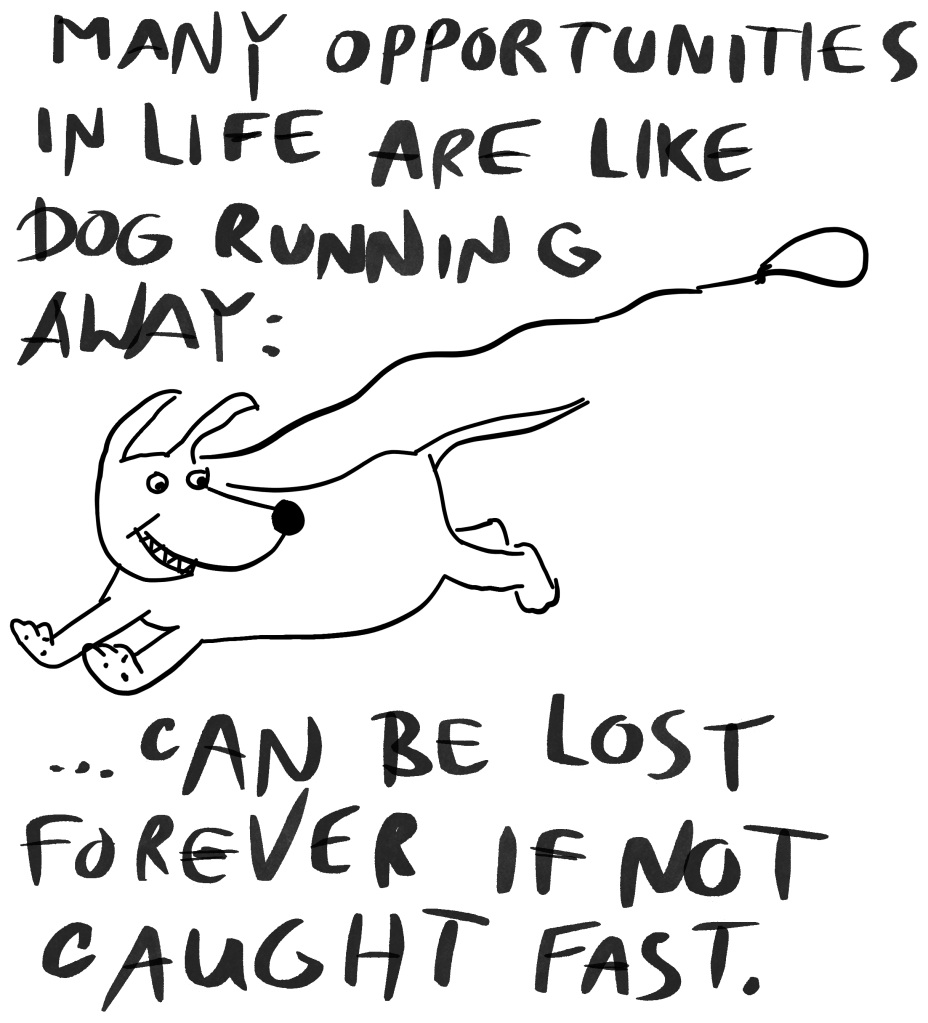 MANY OPPORTUNITIES
IN LIFE ARE LIKE
DOG RUNNING
AWAY:
...CAN BE LOST
FOREVER IF NOT
CAUGHT FAST.